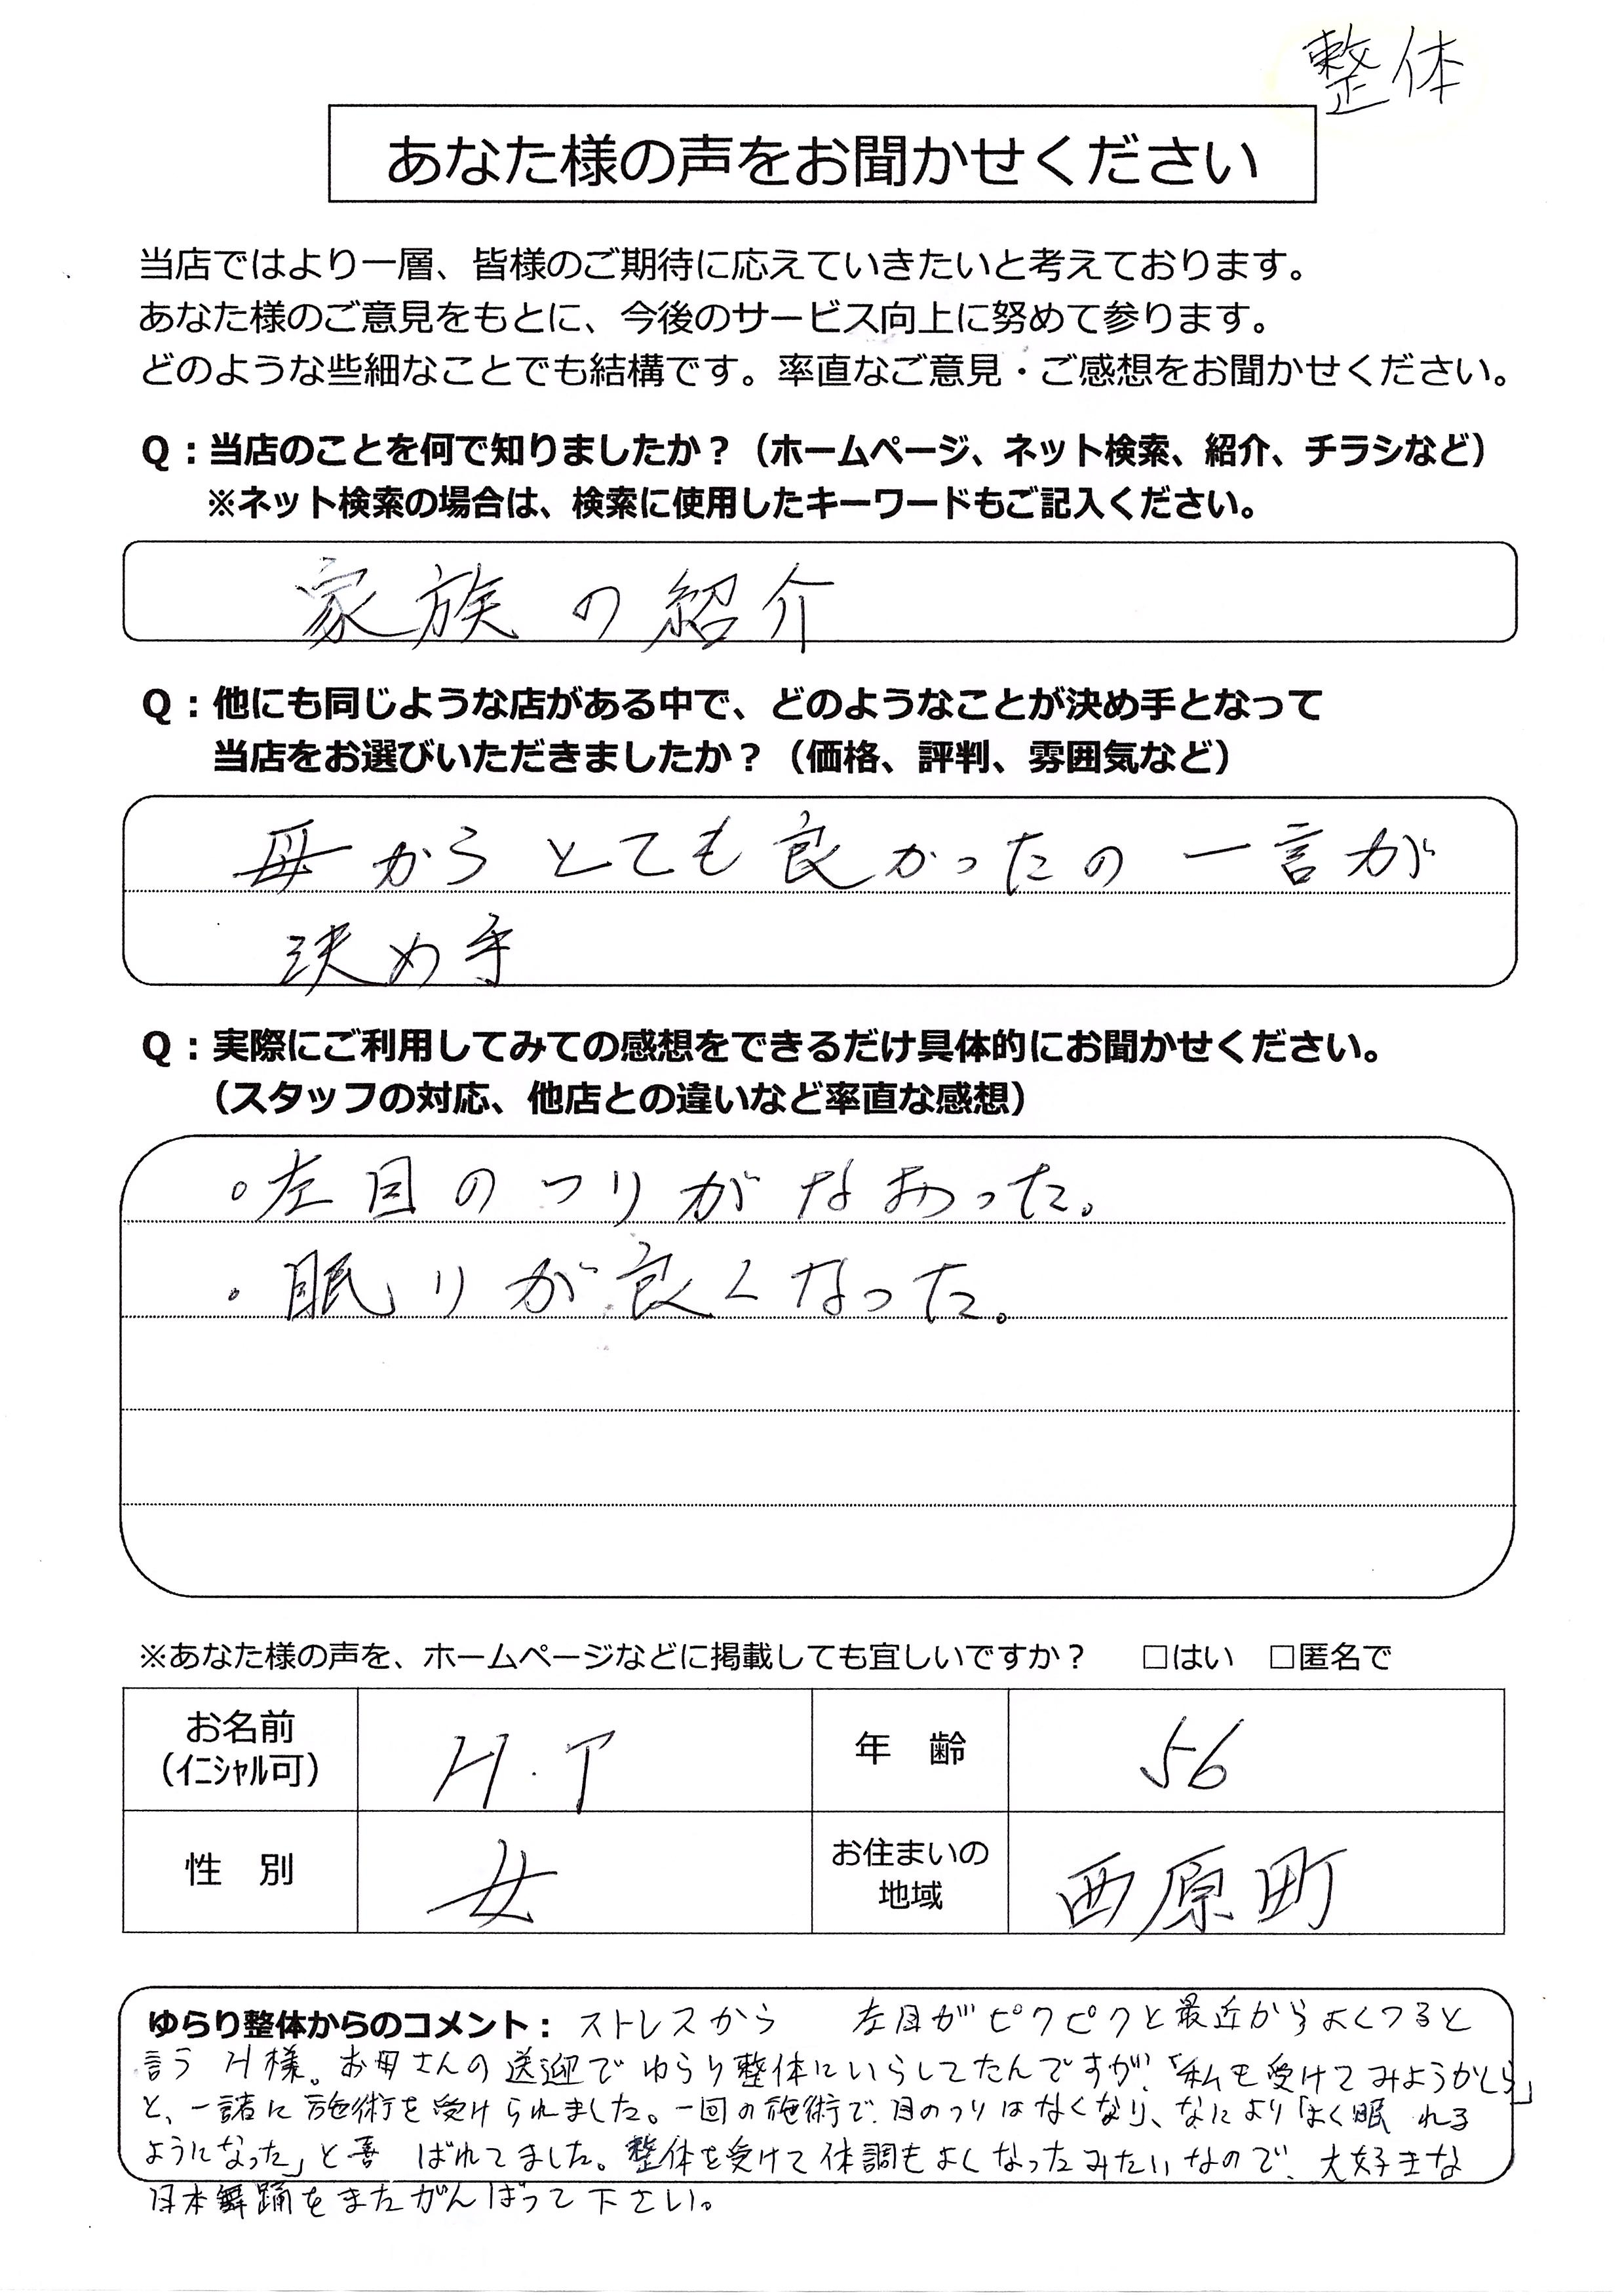 整体
あなた様の声をお聞かせください
当店ではより一層、皆様のご期待に応えていきたいと考えております。
あなた様のご意見をもとに、今後のサービス向上に努めて参ります。
どのような些細なことでも結構です。率直なご意見・ご感想をお聞かせください。
Q：当店のことを何で知りましたか？（ホームページ、ネット検索、紹介、チラシなど）
※ネット検索の場合は、検索に使用したキーワードもご記入ください。
家族の紹介
Q：他にも同じような店がある中で、どのようなことが決め手となって
当店をお選びいただきましたか？（価格、評判、雰囲気など）
母からとても良かったの一言が
決め手
Q：実際にご利用してみての感想をできるだけ具体的にお聞かせください。
（スタッフの対応、他店との違いなど率直な感想）
・左目のつりがなおった。
・眠りが良くなった。
※あなた様の声を、ホームページなどに掲載しても宜しいですか？ □はい □匿名で
お名前
（ｲﾆｼｬﾙ可） H.T 年 齢 56
性 別 女 お住まいの
地域 西原町
ゆらり整体からのコメント：ストレスから 左目がピクピクと最近からよくつると
言うH様。お母さんの送迎でゆらり整体にいらしてたんですが、「私も受けてみようかしら」
と、一諸に施術を受けられました。一回の施術で、目のつりはなくなり、なにより「よく眠れる
ようになった」と喜ばれてました。整体を受けて体調もよくなったみたいなので、大好きな
日本舞踊をまたがんばって下さい。